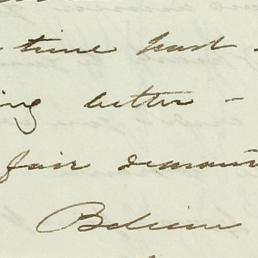 time past
ing better -
fair
Believe